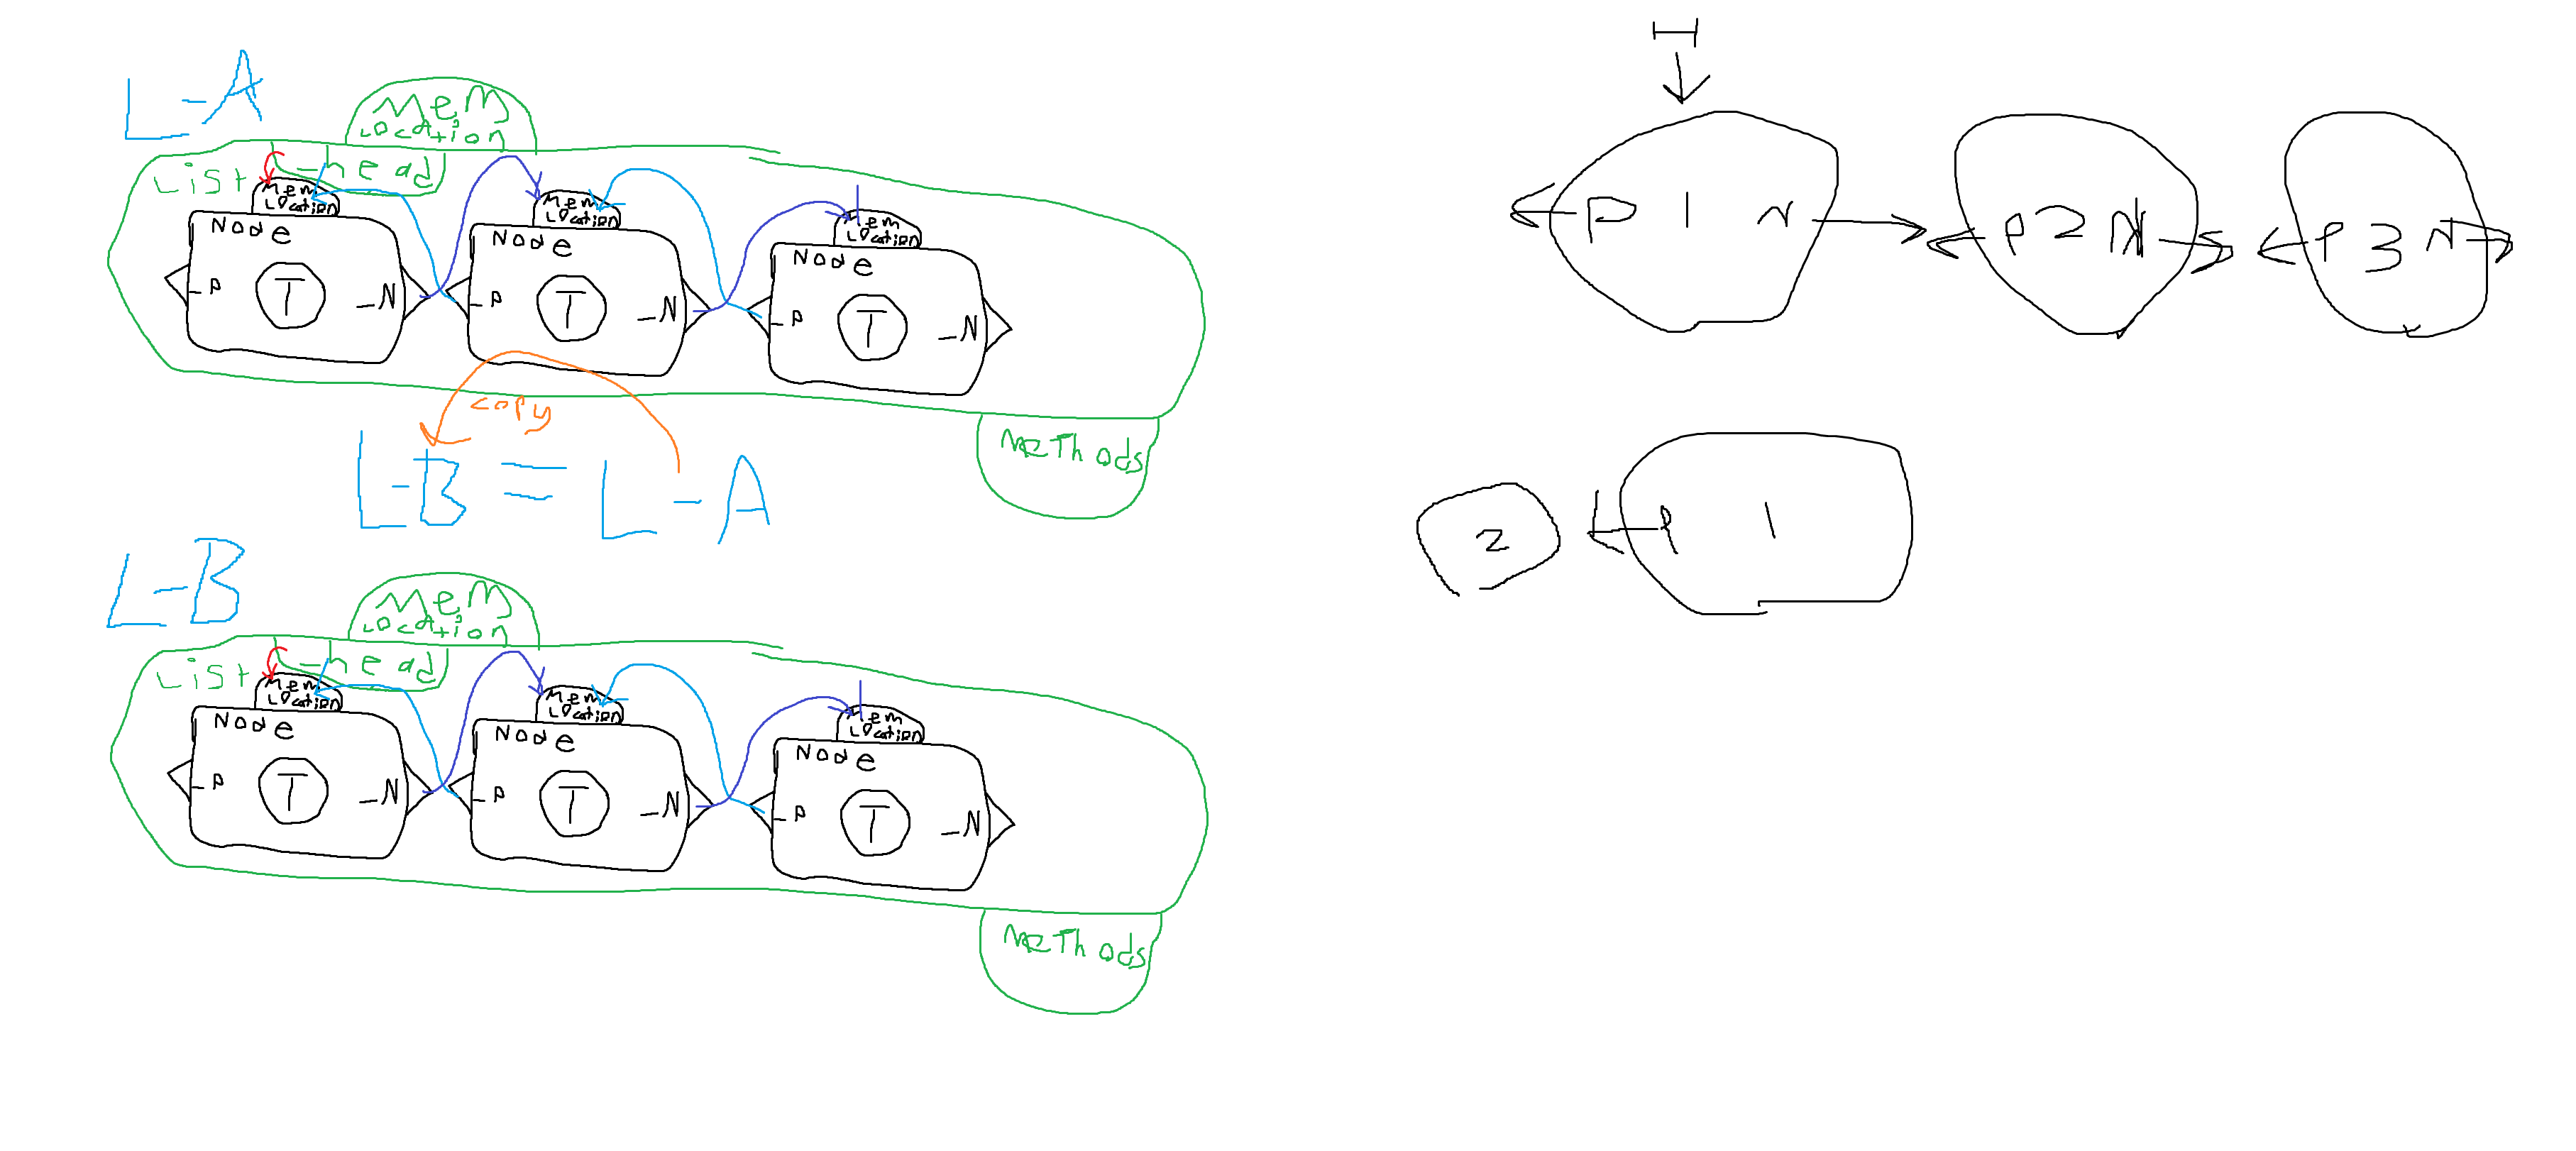 L-A
Mem
Location
List
-head
Mem
Location
Node
_P
T
_N
Mem
Location
Node
_P
T
_N
Mem
Location
Node
_P
T
_N
copy
Methods
L-B = L-A
L-B
Mem
Location
List
-head
Mem
Location
Node
_P
T
_N
Mem
Location
Node
_P
T
_N
Mem
Location
Node
_P
T
_N
Methods
H
P 1 N
P 2 N
P 3 N
2
P 1